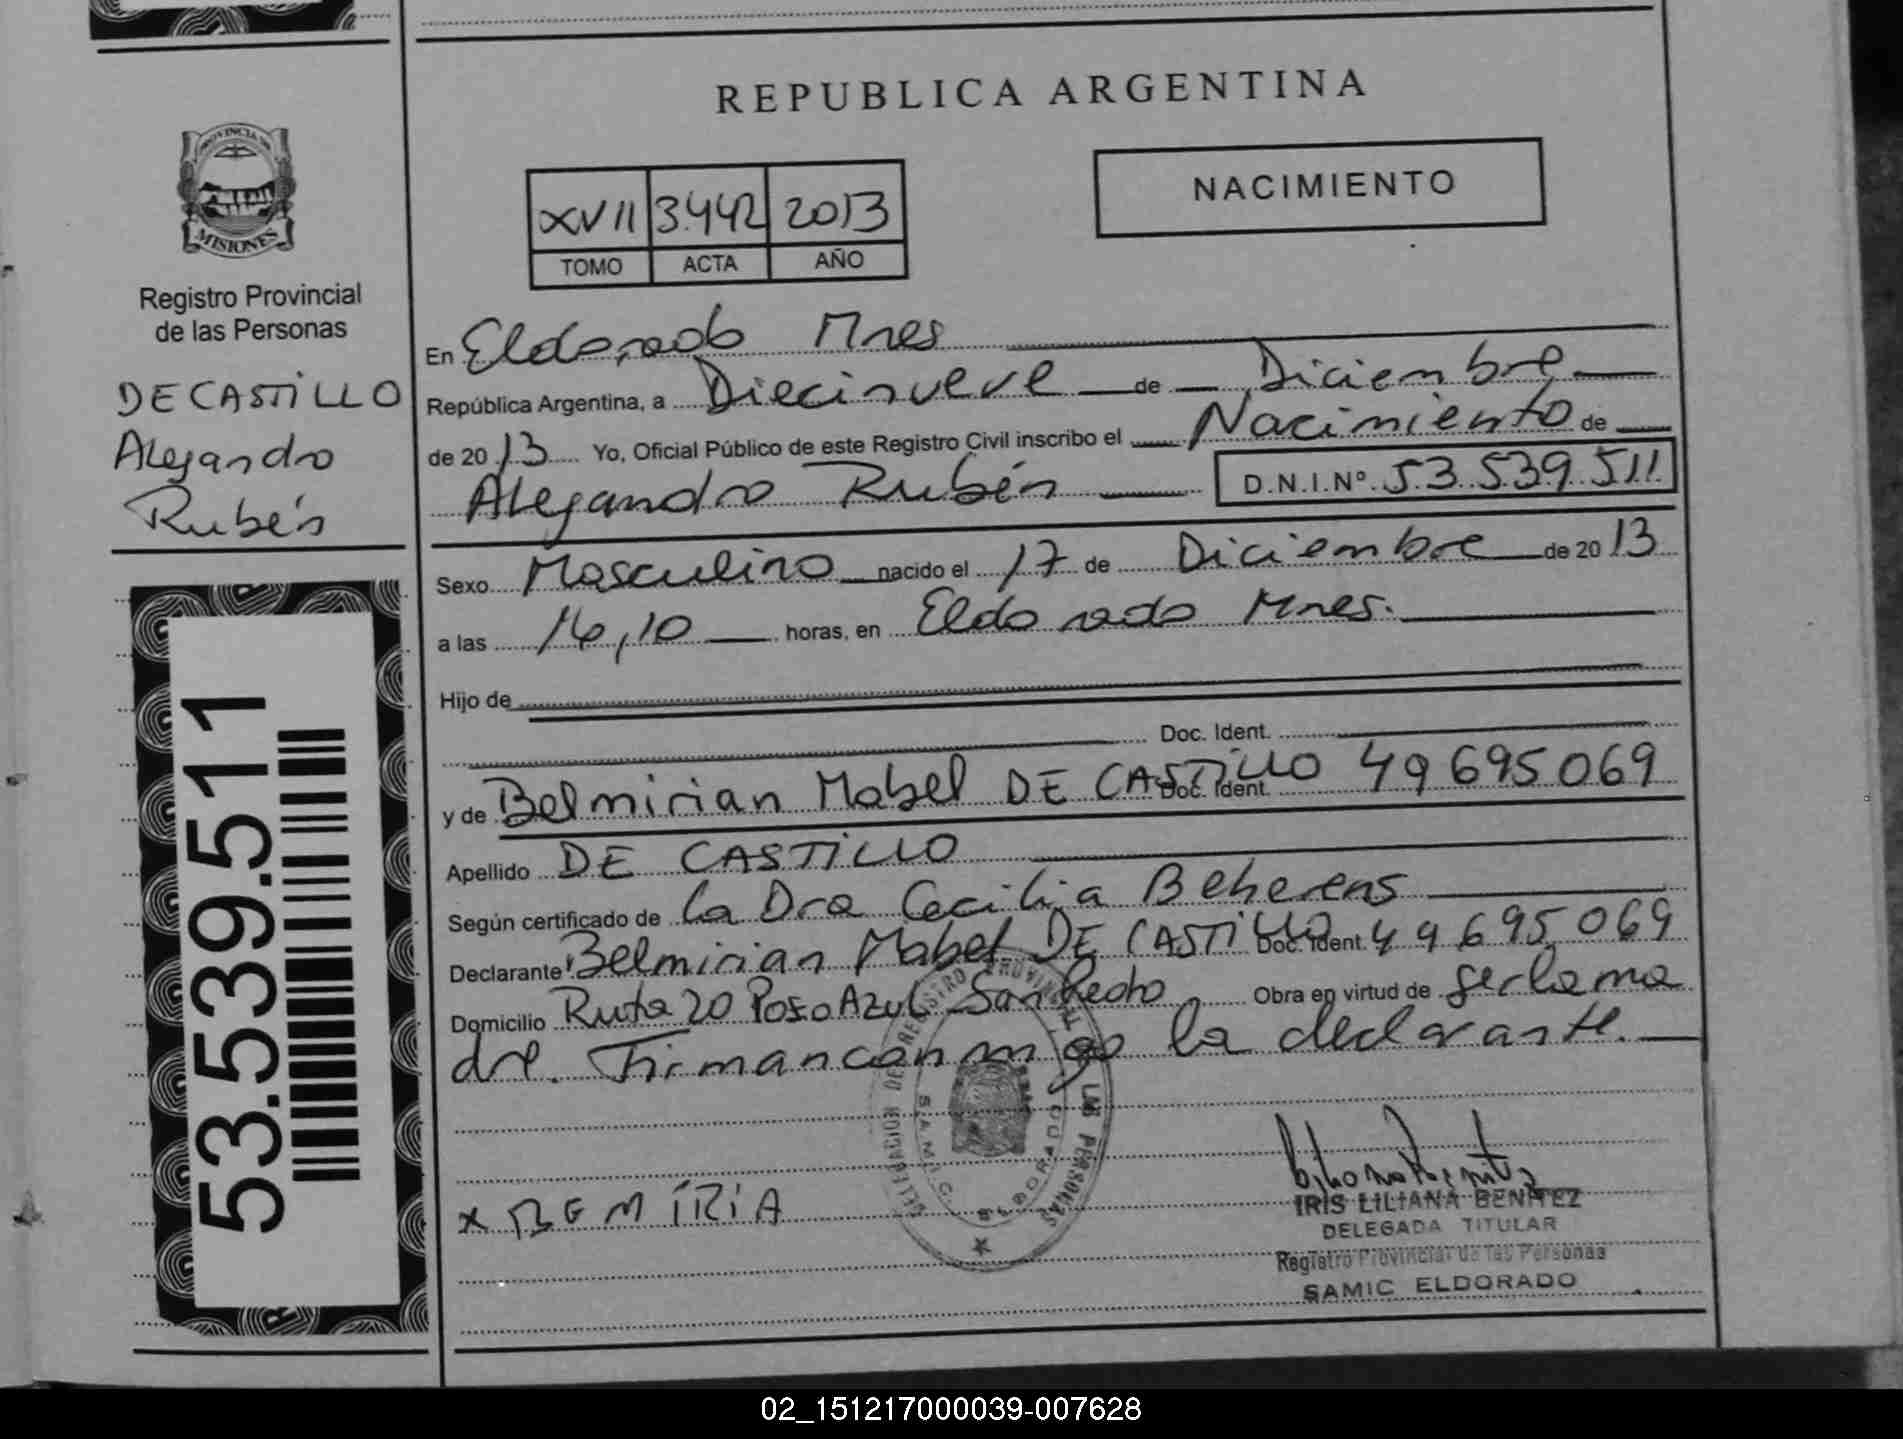 PROVINCIA DE
MISIONES
Registro Provincial
de las Personas
DE CASTILLO
Alejandro
Rubén
53.539.511
REPUBLICA ARGENTINA
XVII 3.442 2013
TOMO ACTA AÑO
NACIMIENTO
En Eldorado Mnes
República Argentina, a Diecinueve de Diciembre
de 2013 Yo, Oficial Público de este Registro Civil inscribo el Nacimiento de
Alejandro Rubén D.N.I.Nº 53.539.511
Sexo Masculino nacido el 17 de Diciembre de 2013
a las 16,10 horas, en Eldorado Mnes.
Hijo de
Doc. Ident.
y de Belmirian Mabel DE CASTILLO Doc. Ident. 49695069
Apellido DE CASTILLO
Según certificado de la Dra Cecilia Beherens
Declarante Belmirian Mabel DE CASTILLO Doc. Ident. 49695069
Domicilio Ruta 20 Poso Azul San Pedro Obra en virtud de ser la ma
dre. Firman conmigo la declarante.
DELEGACION DEL REGISTRO PROVINCIAL DE LAS PERSONAS
S.A.M.I.C.
ELDORADO
x BEMIRIA
IRIS LILIANA BENITEZ
DELEGADA TITULAR
Registro Provincial de las Personas
SAMIC ELDORADO
02_151217000039-007628